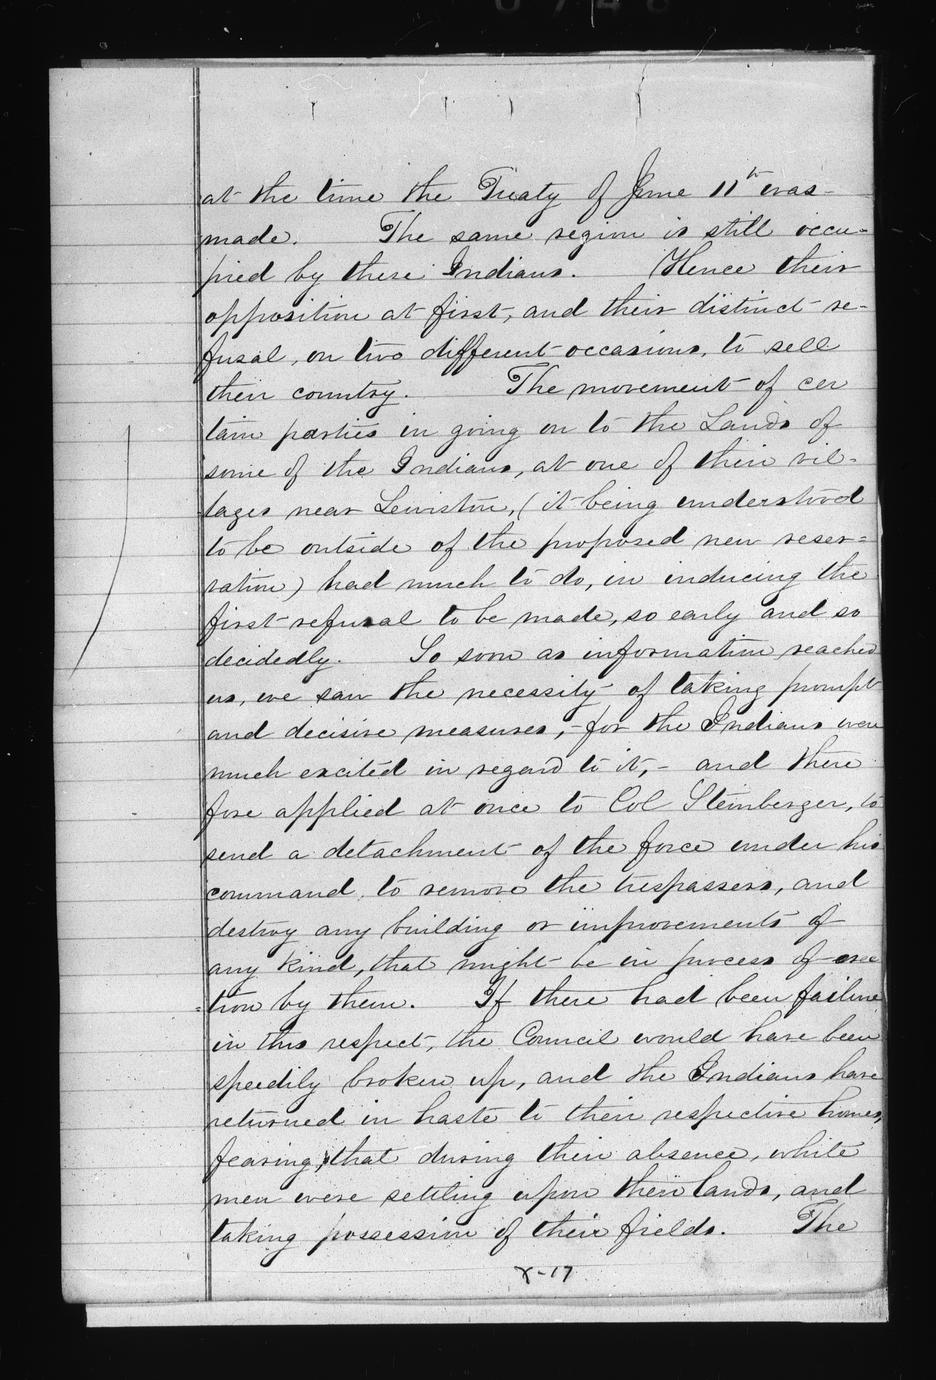 at the time the Treaty of June 11th was
made. The same region is still occu-
pied by these Indians. Hence their
opposition at first, and their distinct re-
fusal, on two different occasions, to sell
their country. The movement of cer
tain parties in going on to the Lands of
some of the Indians, at one of their vil-
lages near Lewiston, (it being understood
to be outside of the proposed new reser-
vation) had much to do, in inducing the
first refusal to be made, so early and so
decidedly. So soon as information reached
us, we saw the necessity of taking prompt
and decisive measures, - for the Indians were
much excited in regard to it, - and there
fore applied at once to Col Steinberger, to
send a detachment of the force under his
command, to remove the trespassers, and
destroy any building or improvements of
any kind, that might be in process of erec
-tion by them. If there had been failure
in this respect, the Council would have been
speedily broken up, and the Indians have
returned in haste to their respective homes,
fearing that during their absence, white
men were settling upon their lands, and
taking possession of their fields. The
X-17